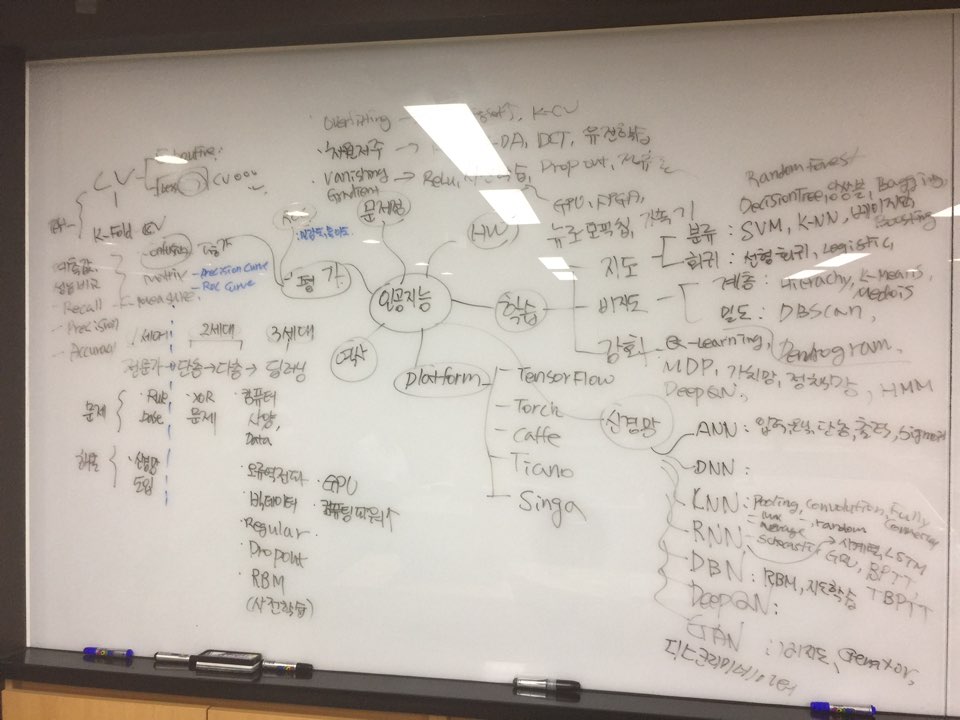 Overfitting K-CV
차원저주 → DA, DCT, 유전학습
Vanishing Gradient → Relu, Drop out,
CV
CV000
K-Fold CV
Recall F-measure
Precision
Accuracy
metric
- Precision Curve
- Roc Curve
평가
문제점
HW
GPU, FPGA,
뉴로모픽칩, 가속기
인공지능
학습
지도
Random Forest
Decision Tree, 앙상블, Bagging,
Boosting
분류 : SVM, K-NN, 베이지안
회귀 : 선형회귀, Logistic,
비지도
계층 : Hierachy, K-Means,
Medois
밀도 : DBScan,
강화
Q-Learning, Dendogram
MDP, 가치망, 정책망, HMM
DeepQN,
역사
1세대 2세대 3세대
전문가 → 단층 → 다층 → 딥러닝
문제
Rule base
XOR 문제
컴퓨터 사양, Data
해결
신경망 도입
오류역전파
빅데이터
Regular
Dropout
RBM
(사전학습)
GPU
컴퓨팅파워↑
Platform
TensorFlow
Torch
Caffe
Tiano
Singa
신경망
ANN : 입력, 은닉, 단층, 출력, Sigmoid
DNN :
KNN : Pooling, Convolution, Fully Connected
- Max - random
- Average
- Stochastic
RNN → 시계열, LSTM
GRU, BPTT
TBPTT
DBN : RBM, 지도학습
DeepQN :
GAN : 비지도,
디스크리미네이터